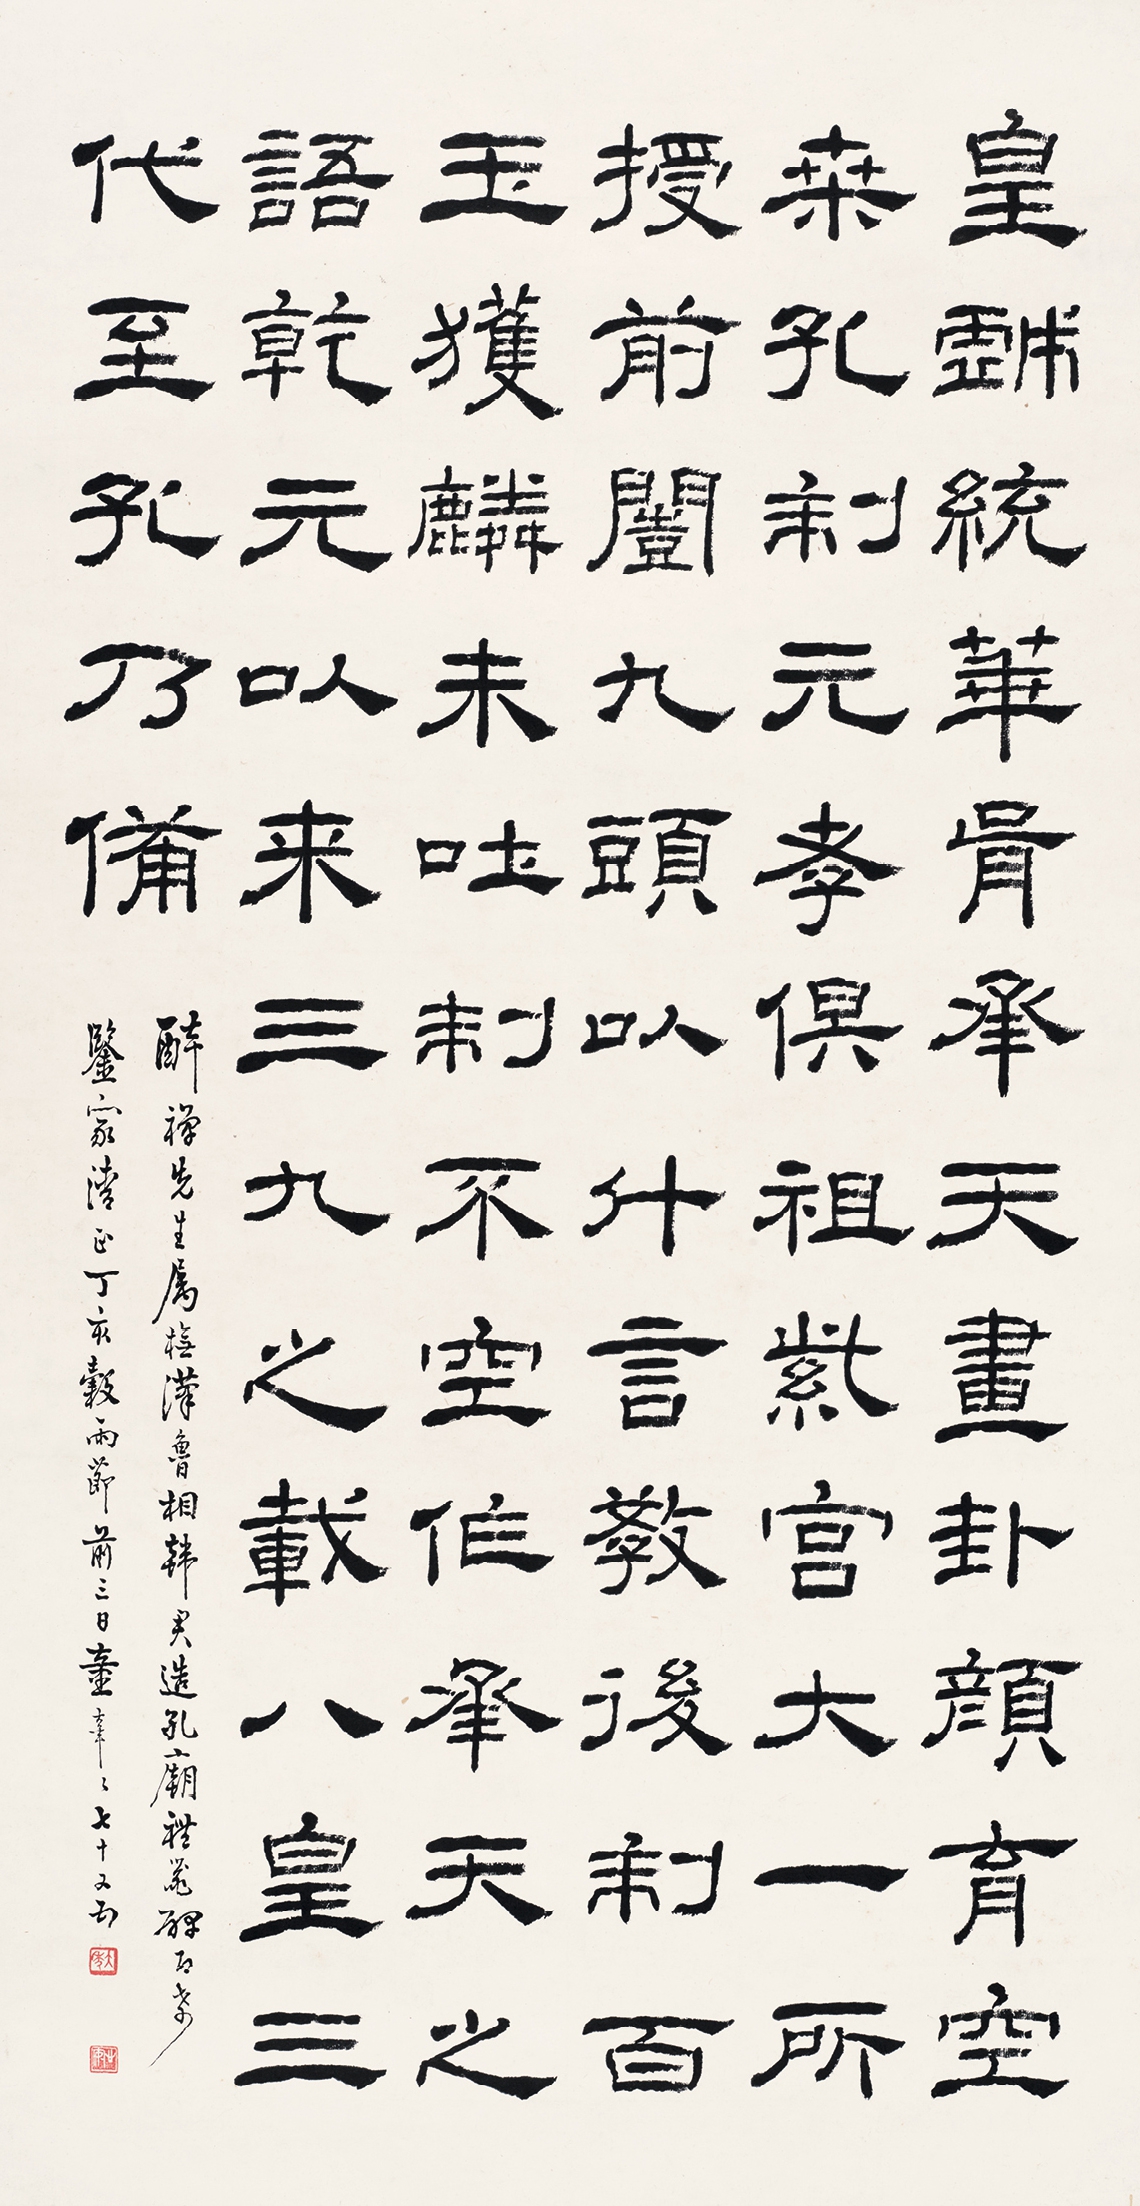 皇戲統華胥承天畫卦顏育空
桒孔制元孝俱祖紫宮大一所
授前闓九頭以什言教後制百
玉獲麟未吐制不空作承天之
語乾元以来三九之載八皇三
代至孔乃備
醉禪先生属橅漢魯相韓君造孔廟禮器碑即希
鑒家清正丁亥穀雨節前三日童大年〻七十又五